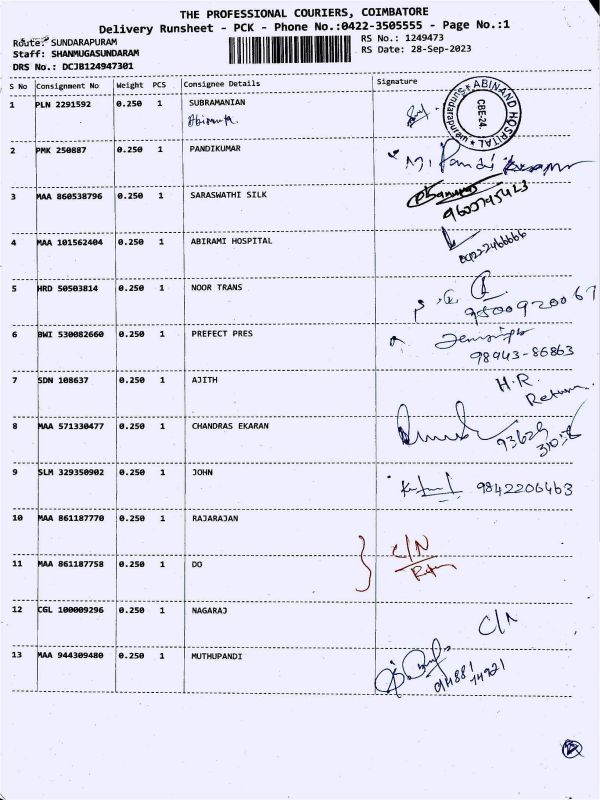 THE PROFESSIONAL COURIERS, COIMBATORE
Delivery Runsheet - PCK - Phone No.:0422-3505555 - Page No.:1
Route: SUNDARAPURAM
RS No.: 1249473
Staff: SHANMUGASUNDARAM
RS Date: 28-Sep-2023
DRS No.: DCJB124947301
S No Consignment No Weight PCS Consignee Details Signature
1 PLN 2291592 0.250 1 SUBRAMANIAN
ABINAND HOSPITAL
Sundarapuram
CBE-24.
2 PMK 250887 0.250 1 PANDIKUMAR
3 MAA 860538796 0.250 1 SARASWATHI SILK
9600795423
4 MAA 101562404 0.250 1 ABIRAMI HOSPITAL
5 HRD 50503814 0.250 1 NOOR TRANS
9500920067
6 BWI 530082660 0.250 1 PREFECT PRES
98943-86863
7 SDN 108637 0.250 1 AJITH H.R.
Return
8 MAA 571330477 0.250 1 CHANDRAS EKARAN
9 SLM 329350902 0.250 1 JOHN 9842206463
10 MAA 861187770 0.250 1 RAJARAJAN
C/N
11 MAA 861187758 0.250 1 DO
12 CGL 100009296 0.250 1 NAGARAJ C/N
13 MAA 944309480 0.250 1 MUTHUPANDI